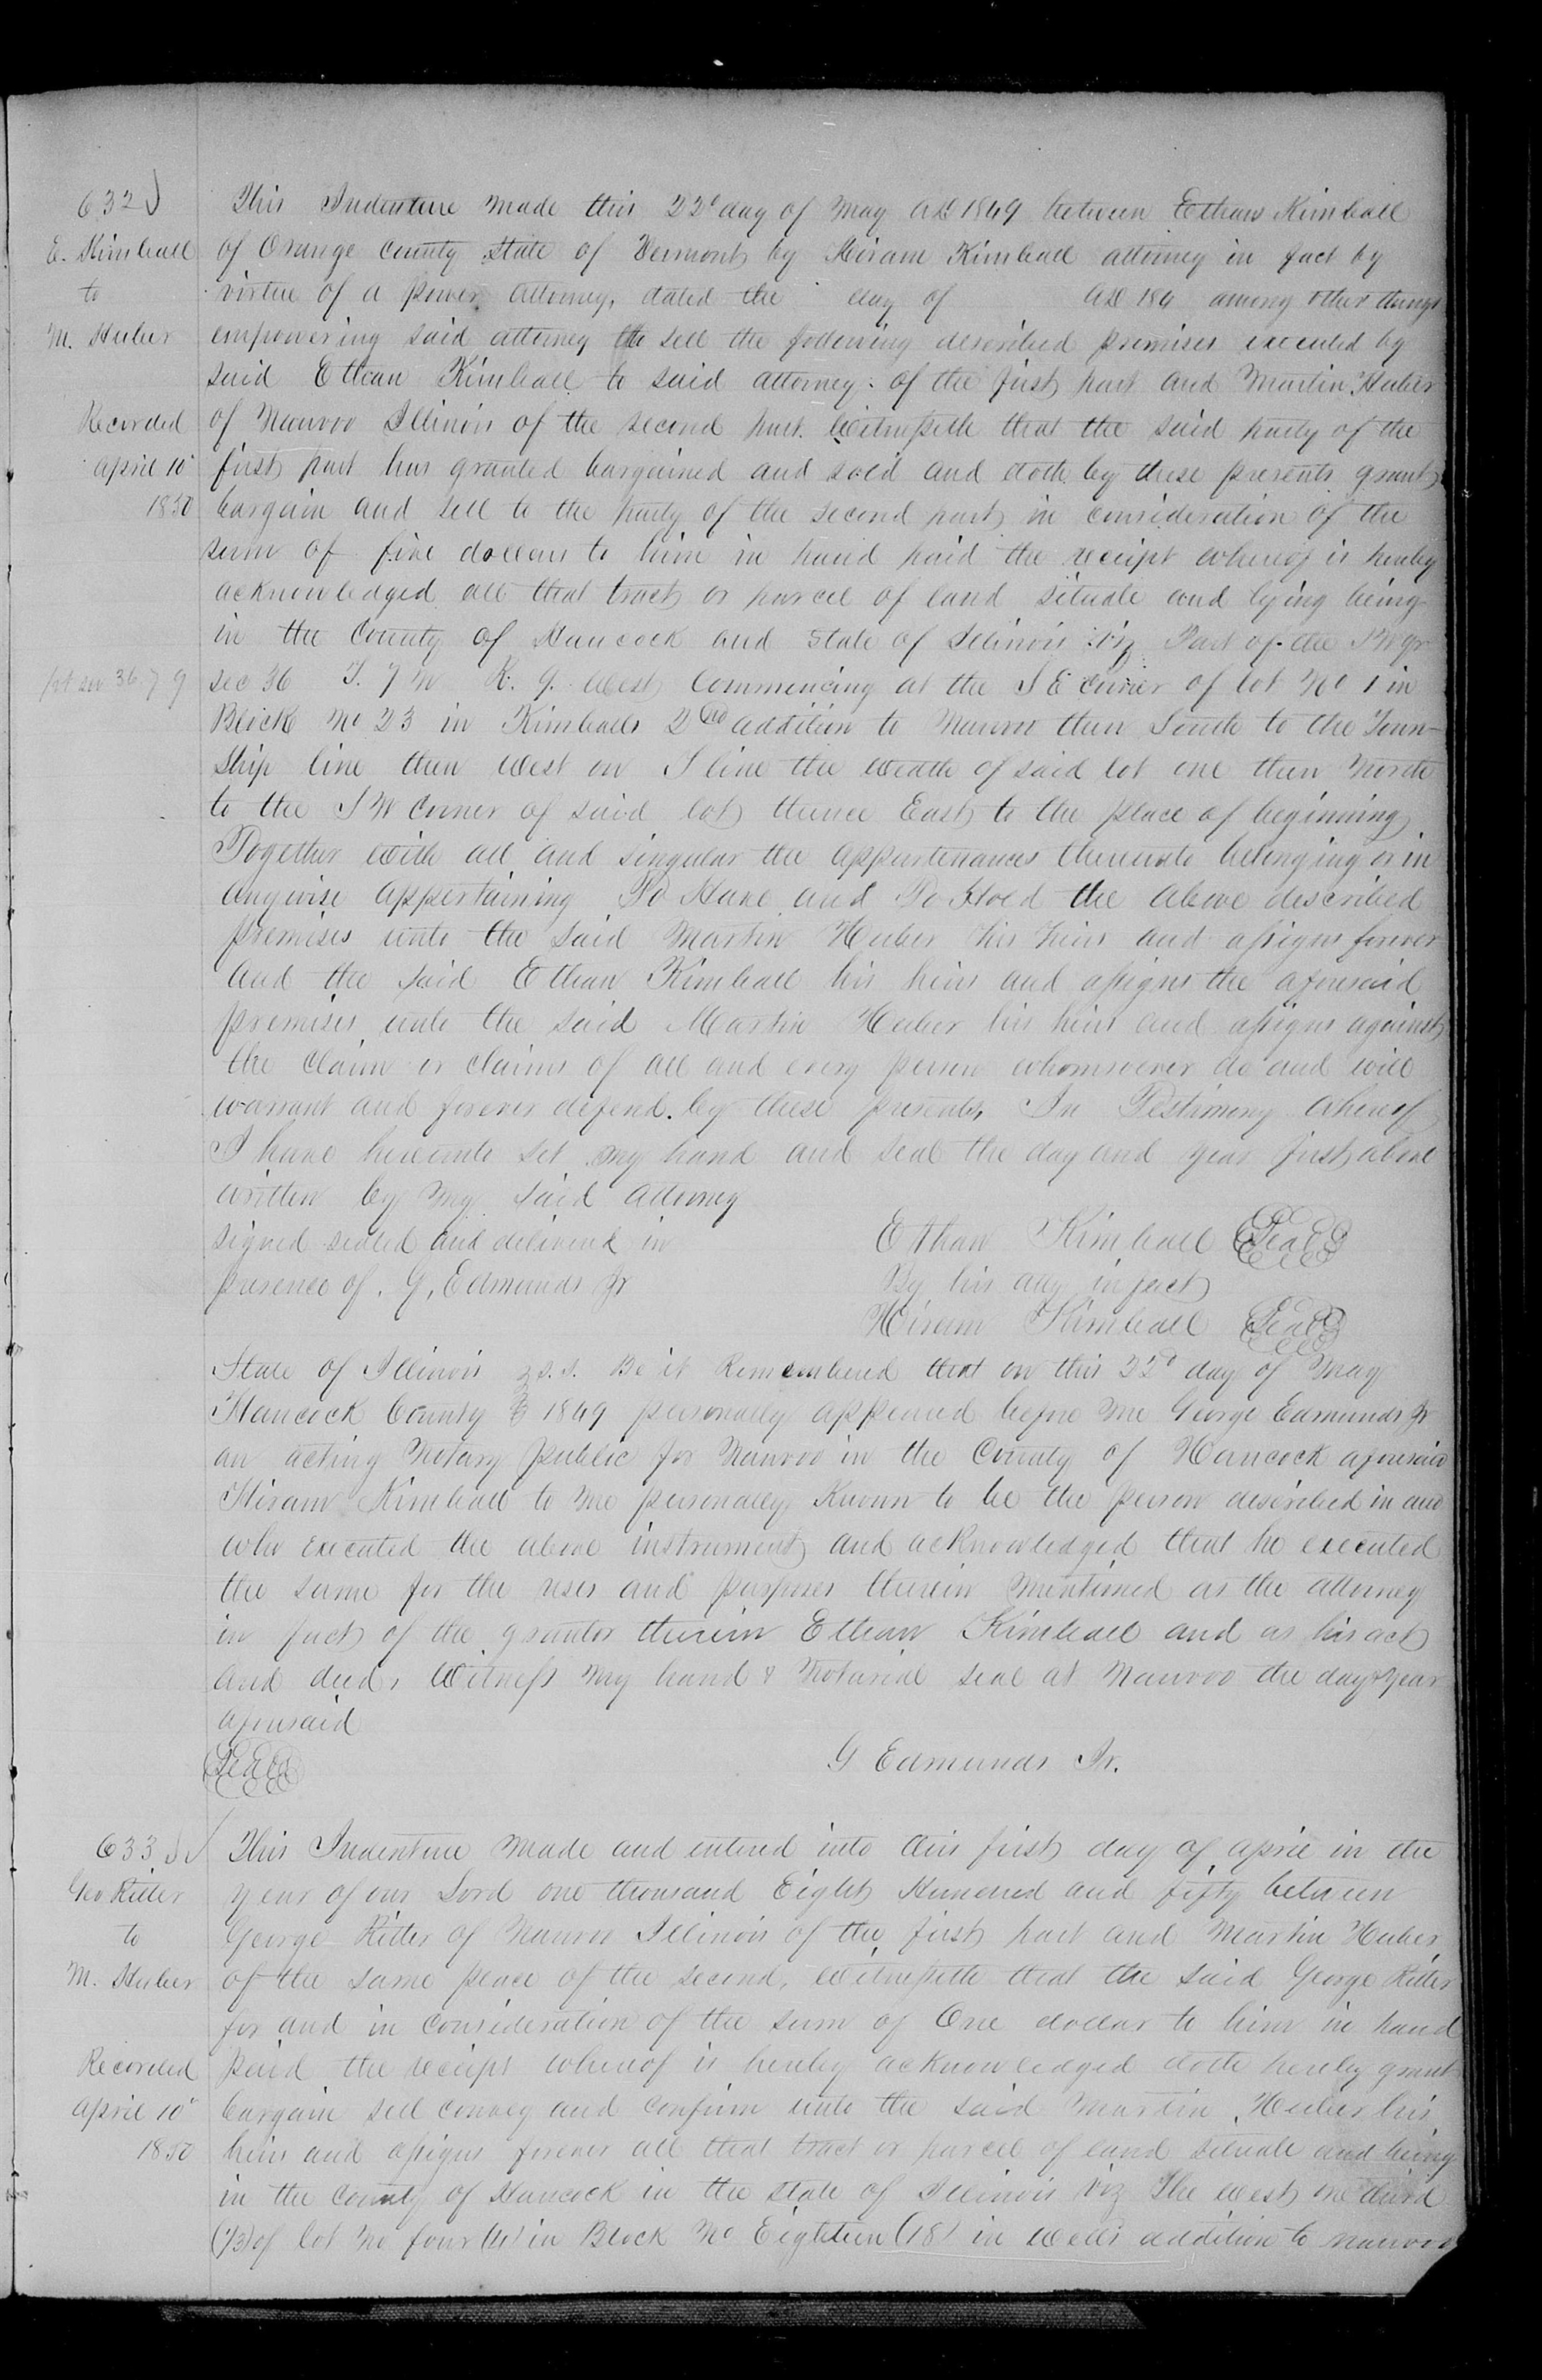 632
E. Kimball
to
M. Huber
Recorded
April 10"
1850
This Indenture made this 22d day of May AD 1849 between Ethan Kimball
of Orange County State of Vermont by Hiram Kimball attorney in fact by
virtue of a power Attorney, dated the day of AD 184 among other things
empowering said attorney to sell the following described premises executed by
said Ethan Kimball to said attorney. of the first part and Martin Huber
of Nauvoo Illinois of the second part. Witnesseth that the said party of the
first part has granted bargained and sold and doth by these presents grant
bargain and sell to the party of the second part in consideration of the
sum of five dollars to him in hand paid the receipt whereof is hereby
acknowledged all that tract or parcel of land situate and lying being
in the County of Hancock and State of Illinois viz Part of the SW qr
pt sec 36 7 9
sec 36 T. 7 N R. 9. West Commencing at the S E corner of lot No 1 in
Block No 23 in Kimballs 2nd addition to Nauvoo then South to the Town-
ship line then West on S line the width of said lot one then North
to the S W Corner of said lot thence East to the place of beginning
Together with all and singular the appurtenances thereunto belonging or in
anywise appertaining To Have and To Hold the above described
premises unto the said Martin Huber his heirs and assigns forever
and the said Ethan Kimball his heirs and assigns the aforesaid
premises unto the said Martin Huber his heirs and assigns against
the claim or claims of all and every person whomsoever do and will
warrant and forever defend by these presents, In Testimony whereof
I have hereunto set my hand and seal the day and year first above
written by my said attorney
signed sealed and delivered in
presence of, G, Edmunds Jr
Ethan Kimball Seal
By his atty in fact
Hiram Kimball Seal
State of Illinois } s.s. Be it Remembered that on this 22d day of May
Hancock County } 1849 personally appeared before me George Edmunds Jr
an acting Notary public for Nauvoo in the County of Hancock aforesaid
Hiram Kimball to me personally Known to be the person described in and
who executed the above instrument and acknowledged that he executed
the same for the uses and purposes therein mentioned as the attorney
in fact of the grantor therein Ethan Kimball and as his act
and deed, Witness my hand & Notarial seal at Nauvoo the day & year
aforesaid
Seal
G Edmunds Jr.
633
Geo Ritter
to
M. Huber
Recorded
April 10"
1850
This Indenture made and entered into this first day of april in the
year of our Lord one thousand Eight Hundred and fifty between
George Ritter of Nauvoo Illinois of the first part and Martin Huber
of the same place of the second, Witnesseth that the said George Ritter
for and in consideration of the sum of One dollar to him in hand
paid the receipt whereof is hereby acknowledged doth hereby grant
bargain sell convey and confirm unto the said Martin Huber his
heirs and assigns forever all that tract or parcel of land situate and being
in the county of Hancock in the state of Illinois viz The west one third
(1/3) of lot No four (4) in Block No Eighteen (18) in Wells addition to Nauvoo